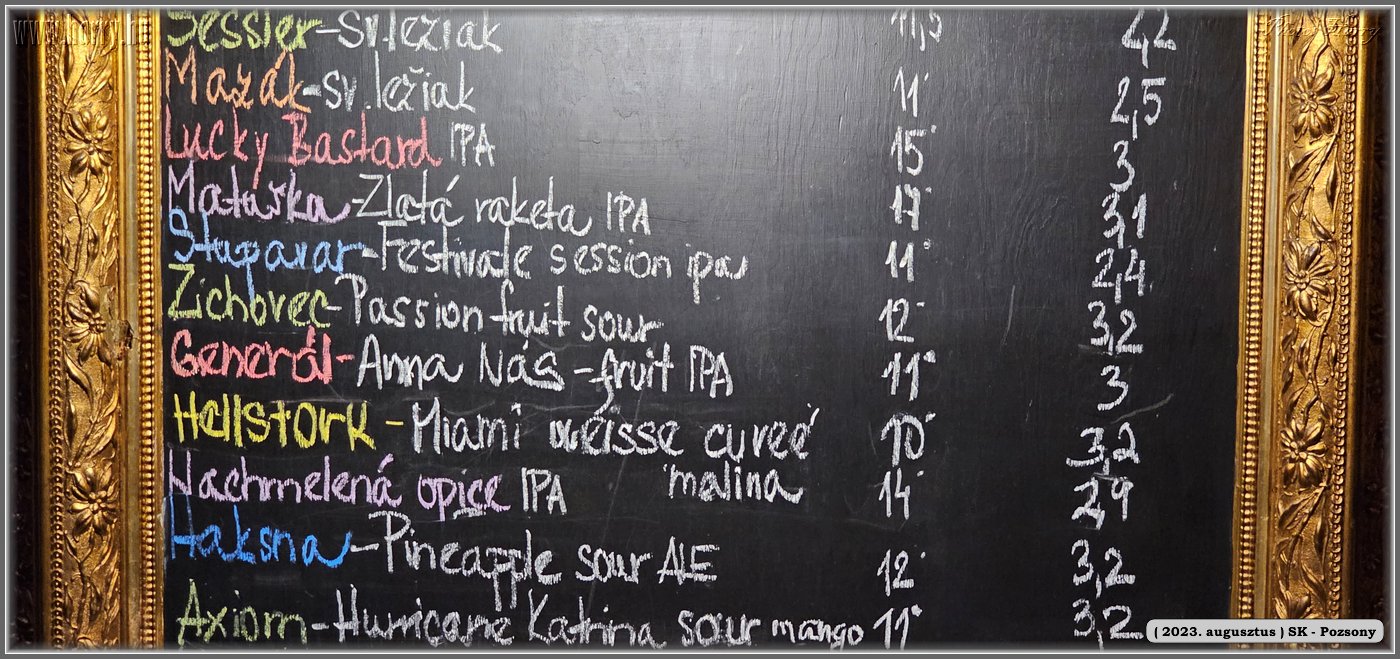 Sessler-Sv.ležiak 11,5 2,2
Mazák-sv.ležiak 11° 2,5
Lucky Bastard IPA 15° 3
Matuška-Zlatá raketa IPA 17° 3,1
Stupavar-Festivale session ipa 11° 2,4
Zichovec-Passion fruit sour 12° 3,2
Generál-Anna Nás-fruit IPA 11° 3
Hellstork-Miami weisse cuveé 10° 3,2
malina
Nachmelená opice IPA 14° 2,9
Haksna-Pineapple sour ALE 12° 3,2
Axiom-Hurricane Katrina sour mango 11° 3,2
( 2023. augusztus ) SK - Pozsony